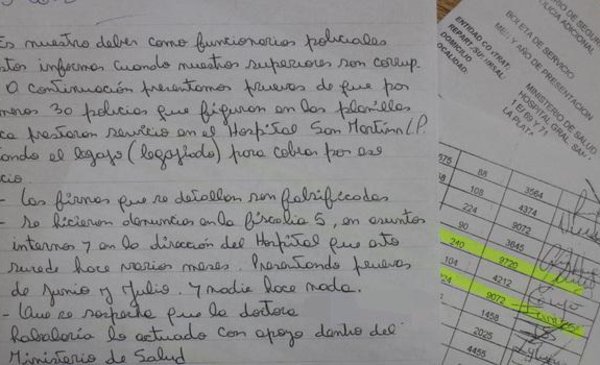 Es nuestro deber como funcionarios policiales
informar cuando nuestros superiores son corrup
A continuación presentamos pruebas de que por
menos 30 policias que figuran en las planillas
prestaron servicio en el Hospital San Martin L.P.
el legajo (legajiado) para cobrar por ese
cio
- Las firmas que se detallan son falsificadas
- Se hicieron denuncias en la fiscalia 5, en asuntos
internos y en la dirección del Hospital que esto
sucede hace varios meses. Presentando pruevas
de Junio y Julio. Y nadie hace nada.
- Que se sospecha que la doctora
lo actuado con apoyo dentro del
Ministerio de Salud
DE SEGUR
BOLETA DE SERVICIO
MES Y AÑO DE PRESENTACION
ENTIDAD CONTRAT.
REPART.
DOMICILIO
LOCALIDAD:
MINISTERIO DE SALUD
HOSPITAL GRAL. SAN
1 E/ 69 Y 71
LA PLATA
575 88 3564
108 4374
224 9072
90 3645
240 9720
104 4212
224 9072
1458
2025
4455